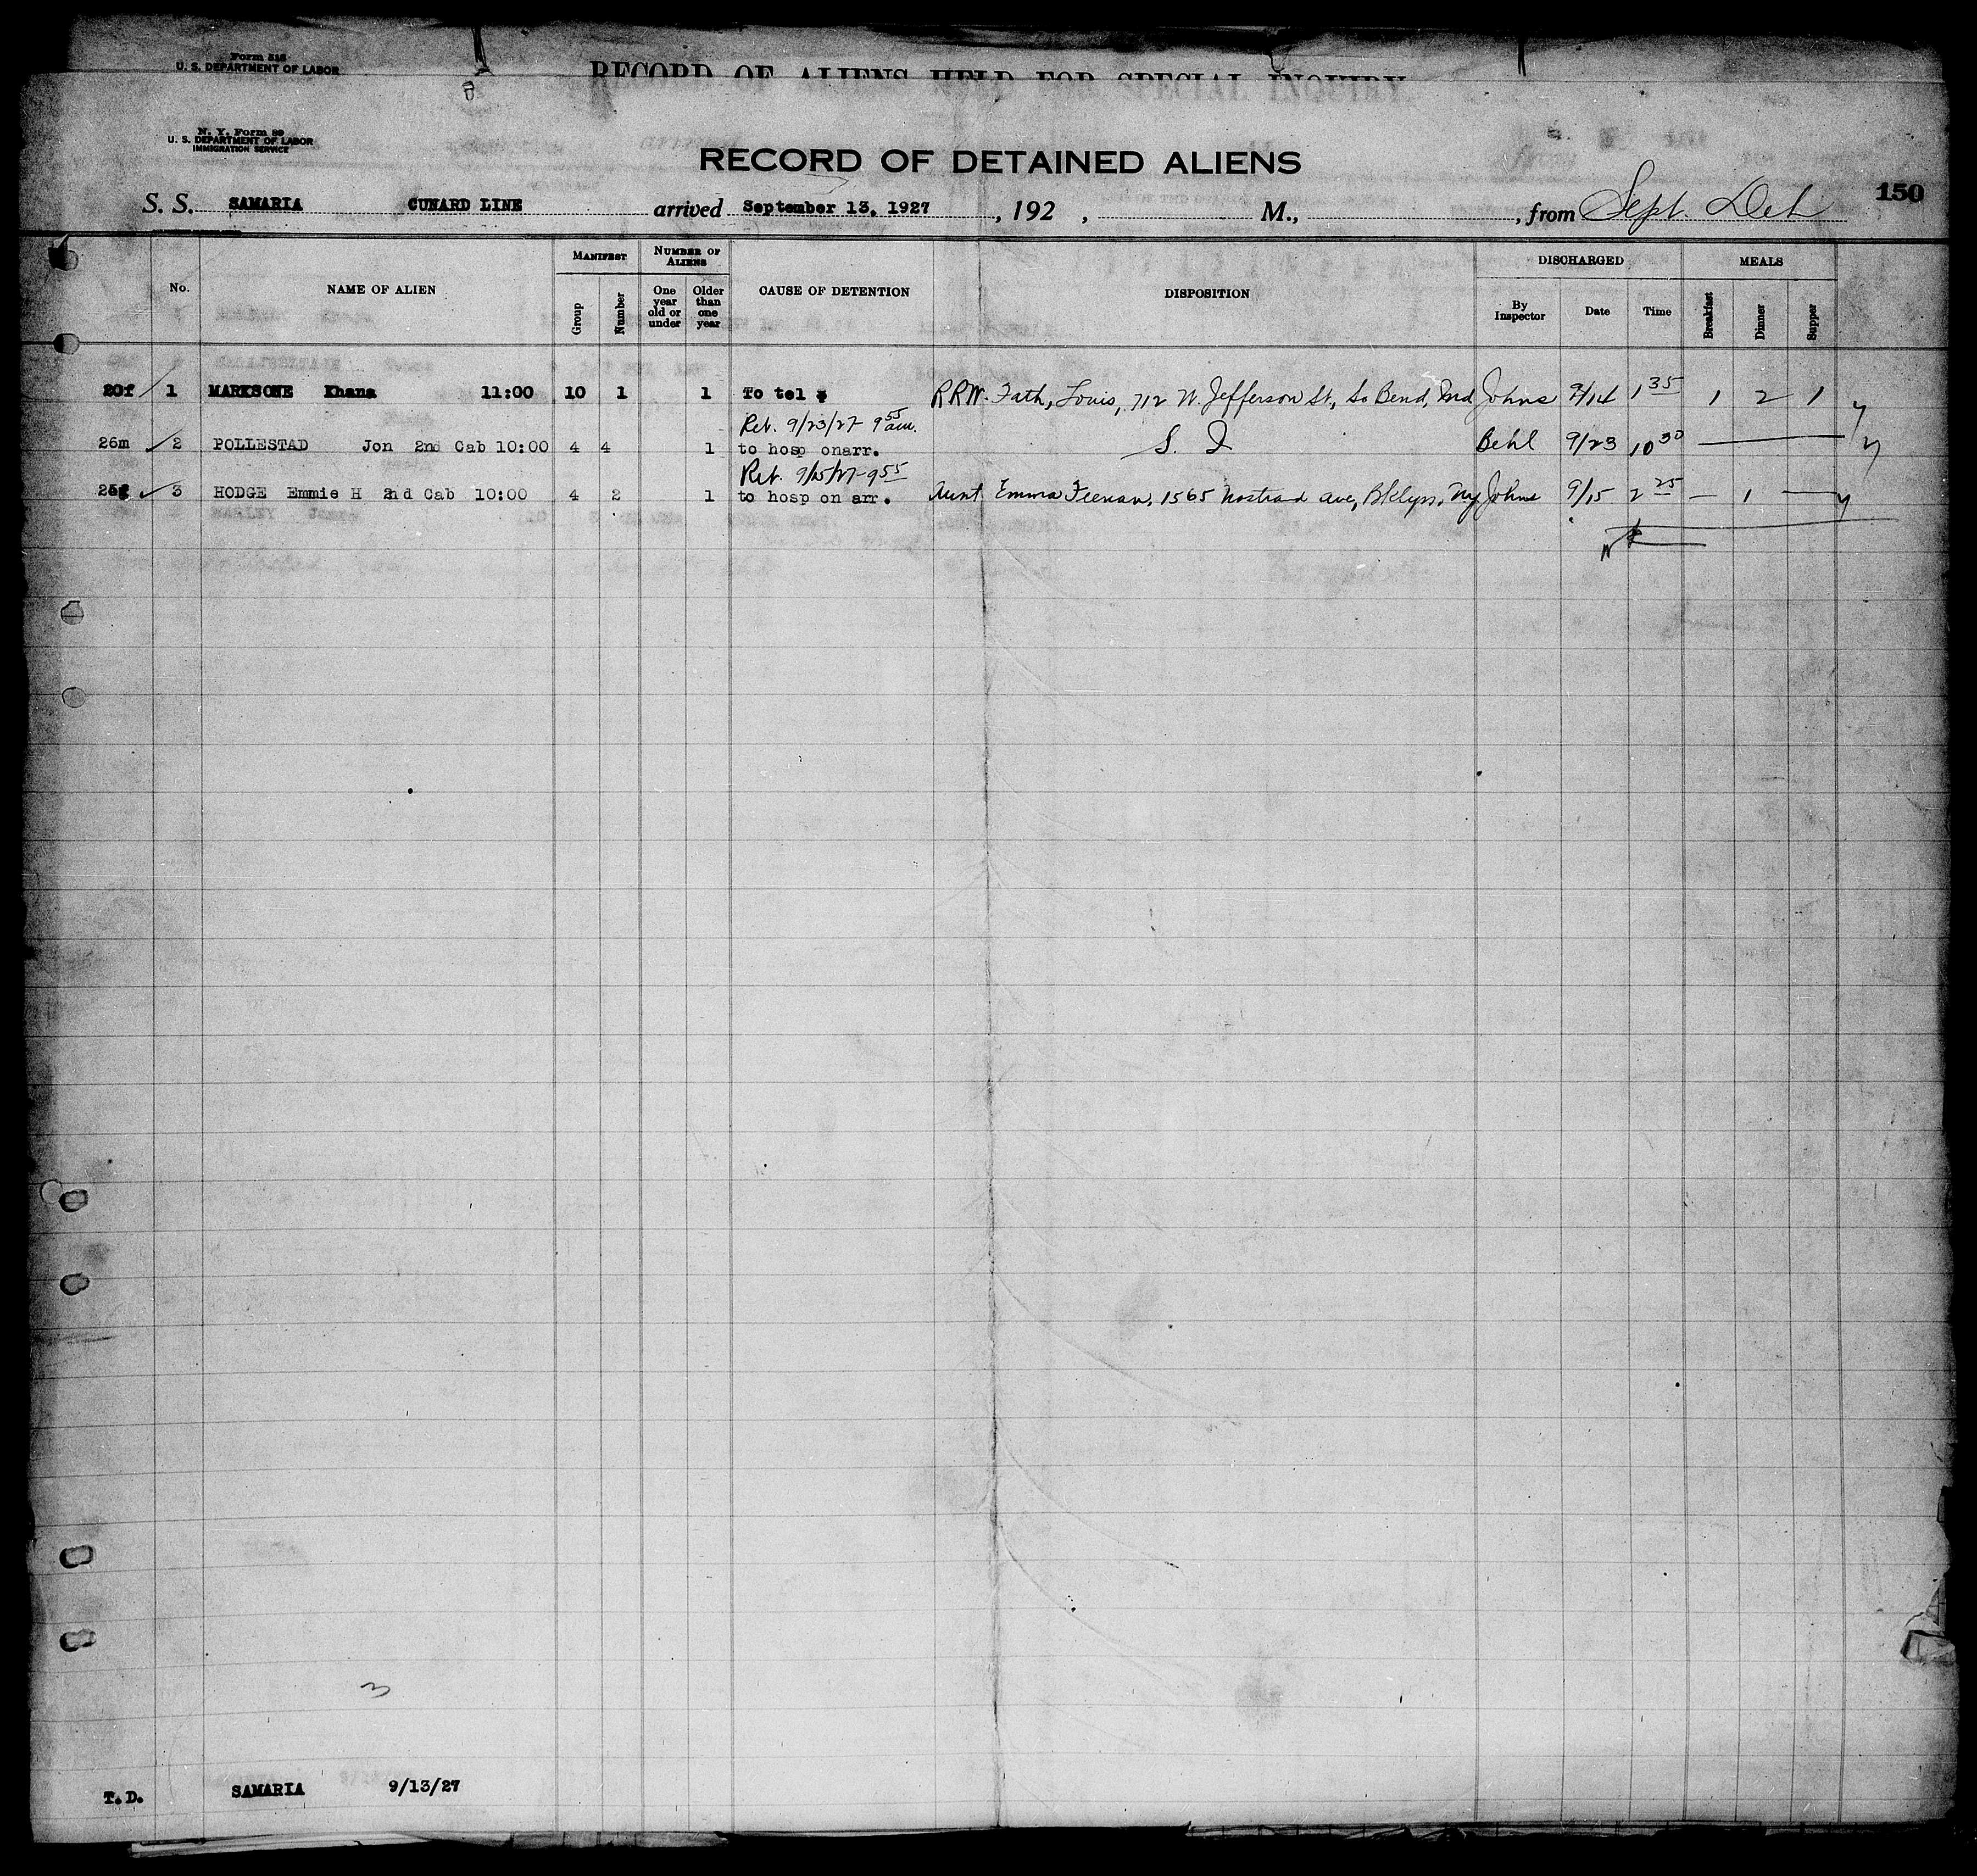 Form 515
U. S. DEPARTMENT OF LABOR
RECORD OF ALIENS HELD FOR SPECIAL INQUIRY
N. Y. Form 89
U. S. DEPARTMENT OF LABOR
IMMIGRATION SERVICE
RECORD OF DETAINED ALIENS
150
S. S. SAMARIA CUNARD LINE arrived September 13, 1927, 192 , M., , from Sept. Det
No. NAME OF ALIEN MANIFEST Group Number NUMBER OF ALIENS One year old or under Older than one year CAUSE OF DETENTION DISPOSITION DISCHARGED By Inspector Date Time MEALS Breakfast Dinner Supper
20f 1 MARKSONE Khana 11:00 10 1 1 To tel RRW. Fath, Louis, 712 W. Jefferson St, So Bend, Ind Johns 9/14 1 35 1 2 1
Ret. 9/23/27 9 55 am.
26m 2 POLLESTAD Jon 2nd Cab 10:00 4 4 1 to hosp onarr. S. I Behl 9/23 10 30
Ret. 9/15/27 - 9 55
25f 3 HODGE Emmie H 2nd Cab 10:00 4 2 1 to hosp on arr. Aunt Emma Feenan, 1565 Nostrand Ave, Bklyn, Ny Johns 9/15 2 25 — 1 —
3
T.D. SAMARIA 9/13/27